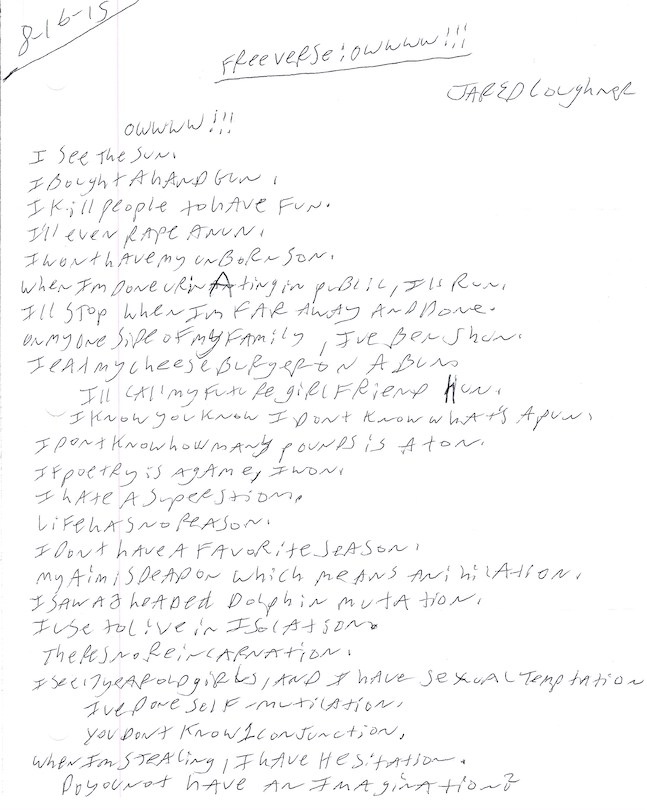 8-16-15
FREEVERSE: OWWWW!!!
JARED Loughner
OWWWW!!!
I see the sun.
I Bought A hAND GUN.
I Kill people to hAVE FUN.
I'll even RAPE A NUN.
I wont have my unBORN SON.
when Im DONE URINAting in puBLic, I'll RUN.
I'll STOP when Im FAR AWAY AND DONE.
on my one SiDe of my FAMILY, I've Ben Shun.
I eAt my cheese BURGER ON A BUN.
I'll CAll my FutuRe giRLFRienD HUN.
I Know you Know I Dont Know whAt's A pun.
I Dont Know how mANy pounDs is A ton.
If poetRy is A gAme, I won.
I hAte A SupeRstion.
Life hAS no ReASon.
I Dont hAVE A FAVORite SeASon.
my Aim is DeAD on which meAns AnihilAtion.
I SAW A 2 heADeD Dolphin mutAtion.
I use to live in ISolAtion.
TheRes no ReinCARNAtion.
I see 17 yeAR olD giRls, AnD I hAve SexuAl Temptation
I've Done SelF-mutilAtion.
you Dont Know 1 conJunction.
when Im SteAling, I hAve HesitAtion.
Do you not hAVe An ImAginAtion?